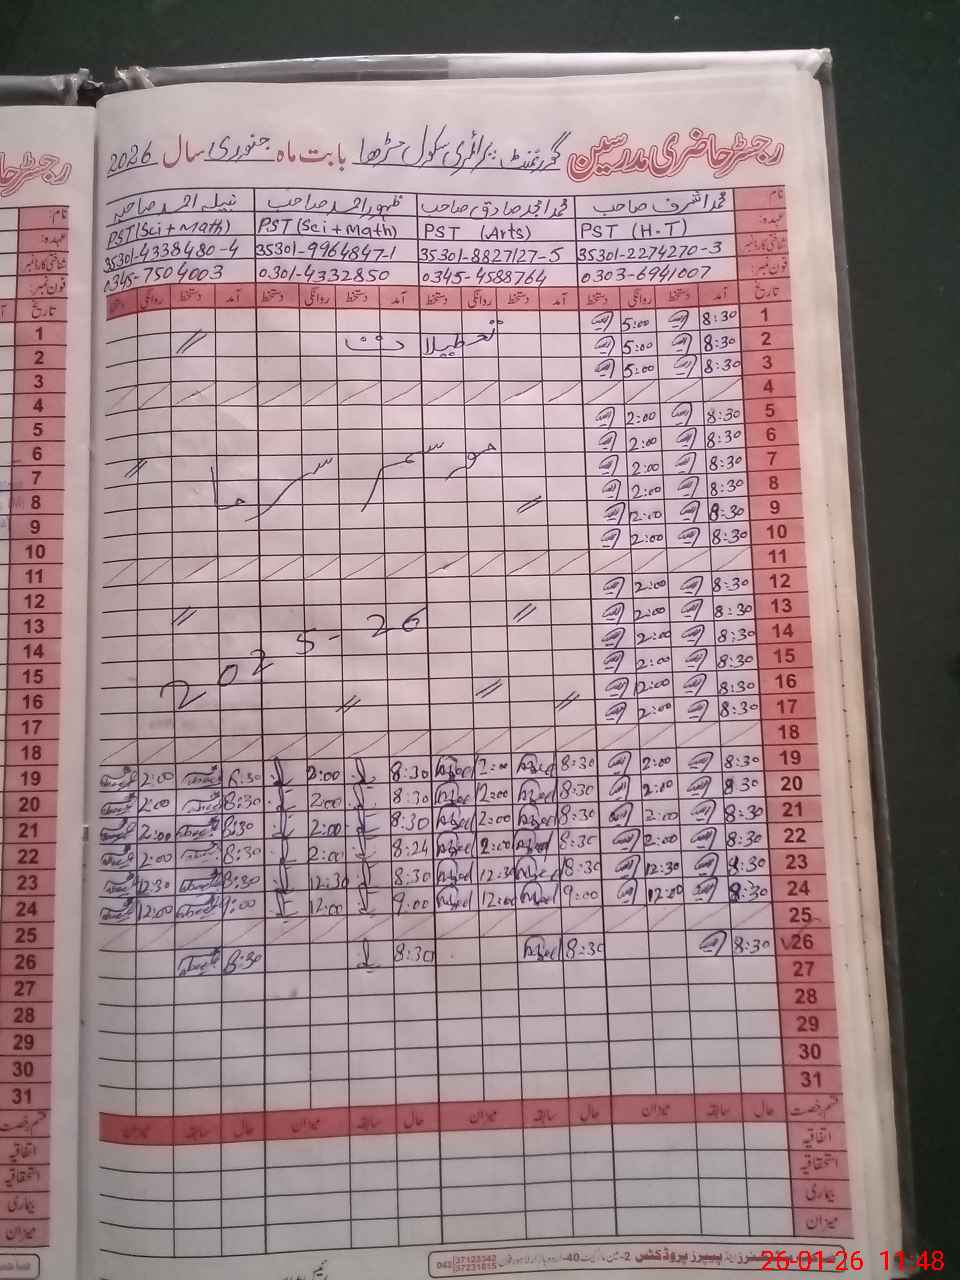 رجسٹر حاضری مدرسین گورنمنٹ پرائمری سکول بابت ماہ جنوری سال 2026
نام: محمد اشرف صاحب محمد امجد صادق صاحب ظہور احمد صاحب نبیلہ احمد صاحبہ
عہدہ: PST (H.T) PST (Arts) PST (Sci + Math) PST (Sci + Math)
شناختی کارڈ نمبر: 35301-2274270-3 35301-8827127-5 35301-9964847-1 35301-4338480-4
فون نمبر: 0303-6941007 0345-4588764 0301-4332850 0345-7504003
تاریخ آمد دستخط روانگی دستخط آمد دستخط روانگی دستخط آمد دستخط روانگی دستخط آمد دستخط روانگی دستخط
1 8:30 5:00
2 8:30 5:00 تعطیلات
3 8:30 5:00
4
5 8:30 2:00
6 8:30 2:00
7 8:30 2:00 موسم سرما
8 8:30 2:00
9 8:30 2:00
10 8:30 2:00
11
12 8:30 2:00
13 8:30 2:00
14 8:30 2:00 2025-26
15 8:30 2:00
16 8:30 12:00
17 8:30 2:00
18
19 8:30 2:00 8:30 2:00 8:30 2:00 8:30 2:00
20 8:30 2:00 8:30 2:00 8:30 2:00 8:30 2:00
21 8:30 2:00 8:30 2:00 8:30 2:00 8:30 2:00
22 8:30 2:00 8:30 2:00 8:24 2:00 8:30 2:00
23 8:30 12:30 8:30 12:30 8:30 12:30 8:30 12:30
24 8:30 12:00 9:00 12:00 9:00 12:00 9:00 12:00
25
26 8:30 8:30 8:30 8:30
27
28
29
30
31
قسم رخصت حال سابقہ میزان حال سابقہ میزان حال سابقہ میزان حال سابقہ میزان
اتفاقیہ
استحقاقیہ
بیماری
میزان
پیپرز پروڈکٹس 2- 40- 042 37123342 37231815
26-01-26 11:48